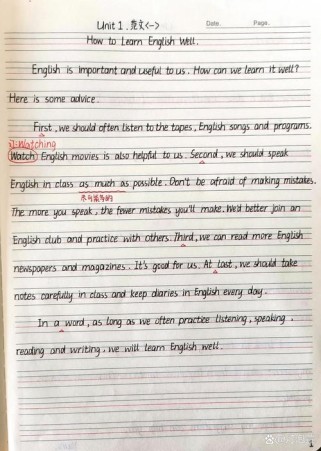 Unit 1. 范文<一>
Date. Page.
How to Learn English Well.
English is important and useful to us. How can we learn it well?
Here is some advice.
First, we should often listen to the tapes, English songs and programs.
Watching
Watch English movies is also helpful to us. Second, we should speak
English in class as much as possible. Don't be afraid of making mistakes.
尽可能多的
The more you speak, the fewer mistakes you'll make. We'd better join an
English club and practice with others. Third, we can read more English
newspapers and magazines. It's good for us. At last, we should take
notes carefully in class and keep diaries in English every day.
In a word, as long as we often practice listening, speaking,
reading and writing, we will learn English well.
1